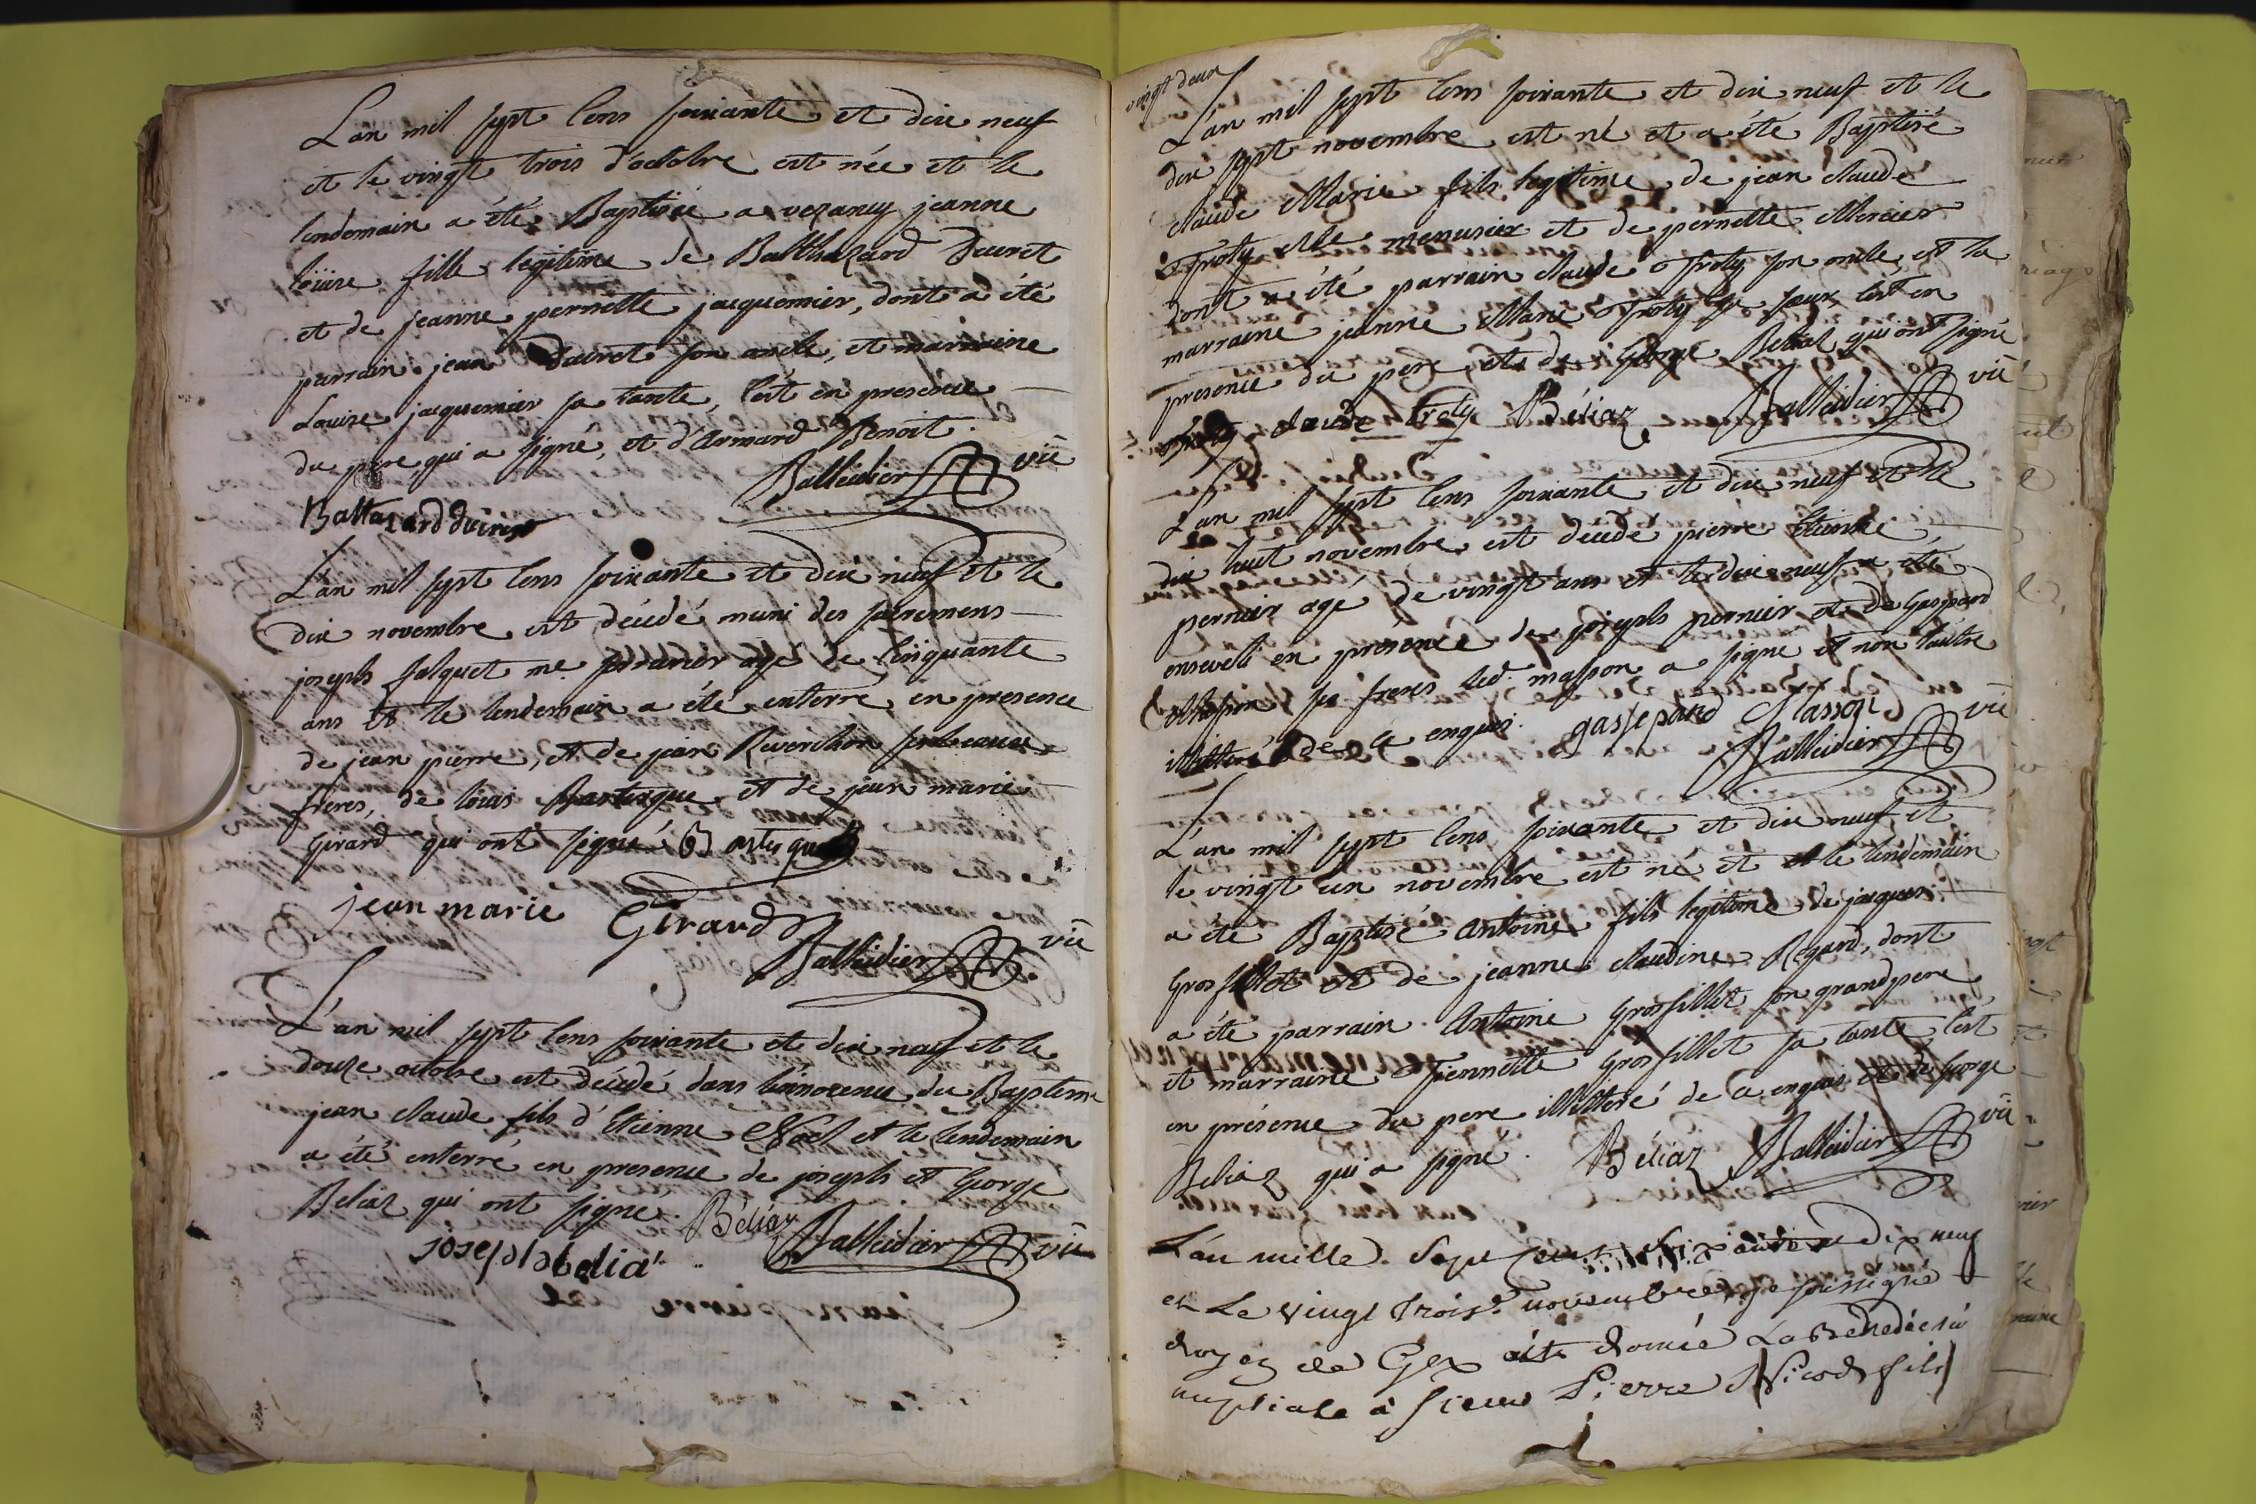 L'an mil sept cens soixante et dix neuf
et le vingt trois d'octobre est née et le
lendemain a été Baptisée a vezancy jeanne
loüise fille legitime de Balthazard Ducret
et de jeanne pernette jacquemier, dont a été
parrain jean Ducret son oncle, et marraine
Louise jacquemier sa tante, c'est en presence
du pere qui a signé, et d'Armard Benoit.
Balleidier vic
Baltazard ducret
L'an mil sept cens soixante et dix neuf et le
dix novembre est décédé muni des sacremens
joseph falquet me. agé de Cinquante
ans et le lendemain a été enterré, en presence
de jean pierre, et de jean Reverchon
freres, de loüis Bartusque et de jean marie
Girard qui ont signé Bastuque
jean marie Girard
Balleidier vic
L'an mil sept cens soixante et dix neuf et le
douze octobre est décédé dans l'innocence du Baptême
jean claude fils d'Etienne Noël et le lendemain
a été enterré en presence de joseph et George
Beliaz qui ont signe. Béliaz
Balleidier vic
joseph belia
vingt deux
L'an mil sept cens soixante et dix neuf et le
dix sept novembre est né et a été Baptisé
claude Marie fils legitime de jean claude
Troty Me menusier et de pernette Mercier
dont a été parrain claude Troty son oncle, et la
marraine jeanne Marie Troty sa sœur, c'est en
presence du pere, et de George Beliaz qui ont signé
claude troty Béliaz Balleidier vic
L'an mil sept cens soixante et dix neuf et le
dix huit novembre est décédé pierre Etienne
pernier agé de vingt ans et le dix neuf a été
enseveli en présence de joseph pernier et de Gaspard
Masson ses freres led. masson a signe et non l'autre
illitteré de ce enquis. gassepard Masson
Balleidier vic
L'an mil sept cens soixante et dix neuf et
le vingt un novembre est né et et le lendemain
a été Baptisé Antoine fils legitime de jacques
Grosfillet et de jeanne claudine Regard, dont
a été parrain Antoine Grosfillet son grandpere
et marraine Pernette Grosfillet sa tante, c'est
en présence du pere illitteré de ce enquis et de George
Beliaz qui a signé. Béliaz Balleidier vic
L'an mille Sept cens Soixante Dix neuf
et Le vingt Trois.e novembre je soussigné
doyen de Gex ait donnée La Bénédictio
nuptiale à Sieur Pierre Nicod fils